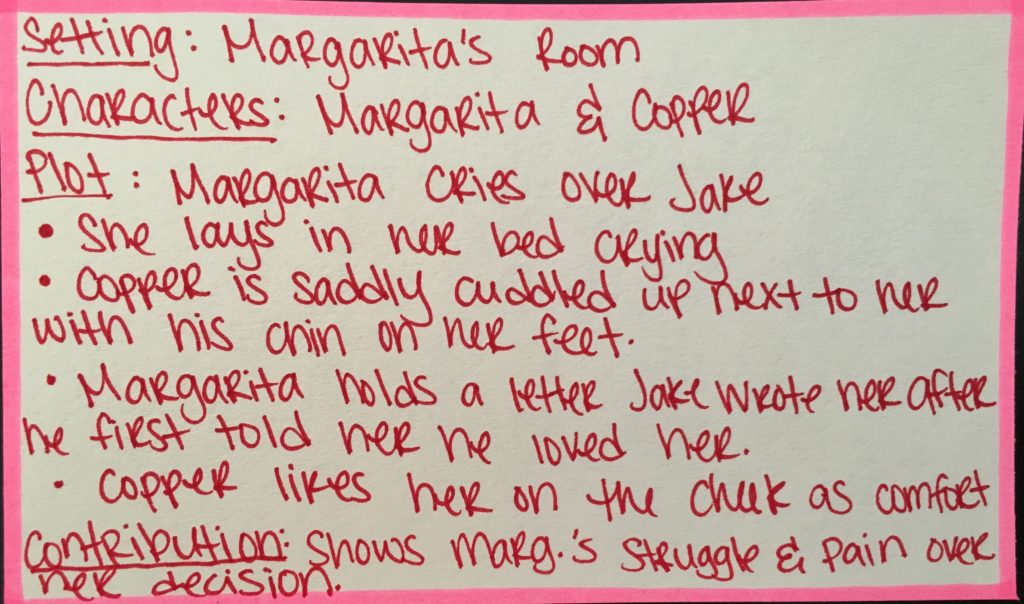 Setting: Margarita's Room
Characters: Margarita & Copper
Plot: Margarita cries over Jake
• She lays in her bed crying
• Copper is saddly cuddled up next to her
with his chin on her feet.
• Margarita holds a letter Jake wrote her after
he first told her he loved her.
• Copper likes her on the cheek as comfort
Contribution: Shows Marg.'s Struggle & Pain over
her decision.